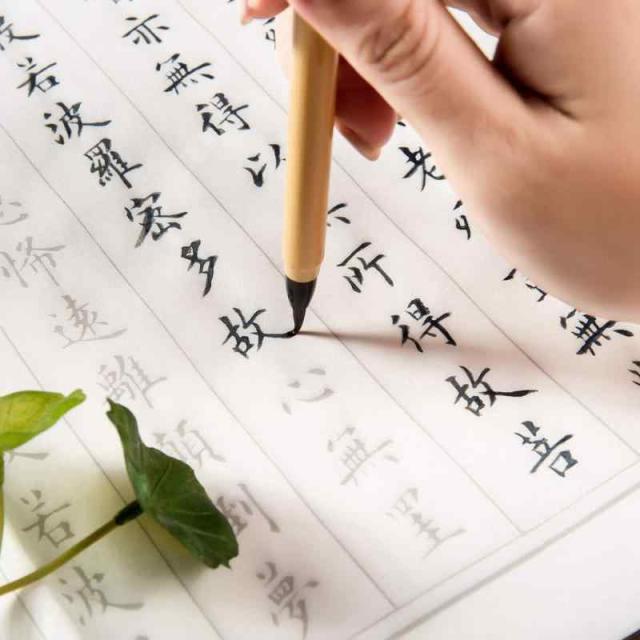 老死無
亦無得以所得故菩
若波羅蜜多故心無罣
怖遠離顛倒夢
若波